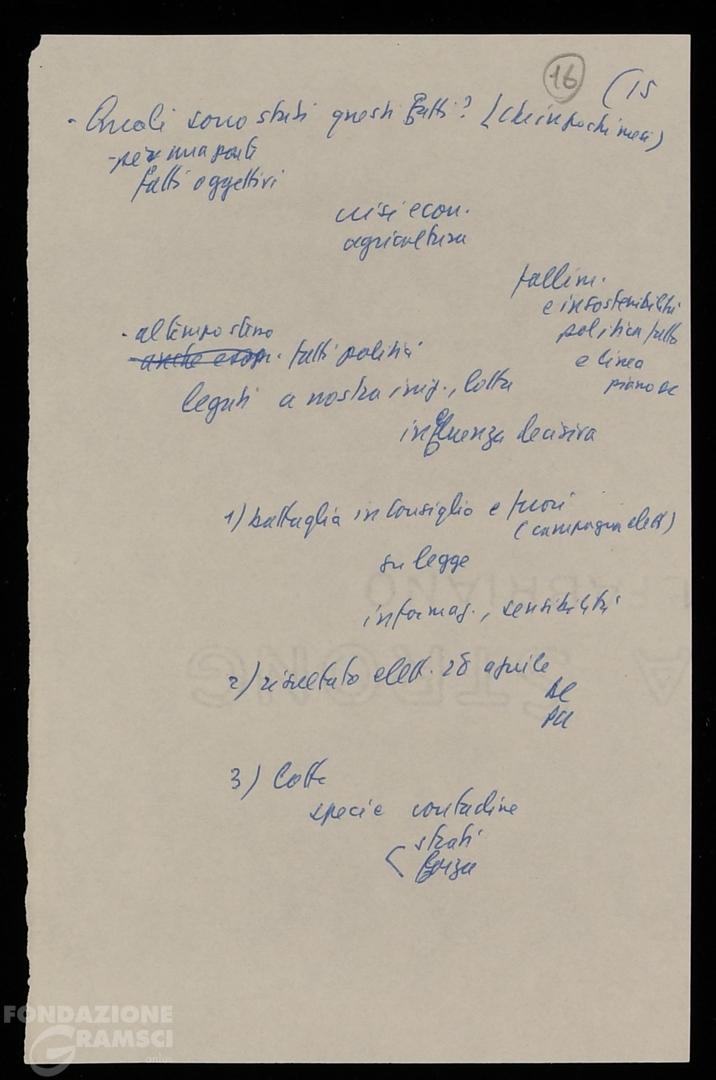 16
(15
- Quali sono stati questi fatti? (che in pochi mesi)
- per una parte
fatti oggettivi
crisi econ.
agricoltura
fallim.
e insostenibilità
politica fatti
e linea
piano DC
- al tempo stesso
anche econ. fatti politici
legati a nostra iniz., lotta
influenza decisiva
1) battaglia in Consiglio e fuori
(campagna elett)
su legge
informaz., sensibilità
2) risultato elett. 28 aprile
DC
PCI
3) Lotte
specie contadine
strati
forza
FONDAZIONE
GRAMSCI
onlus